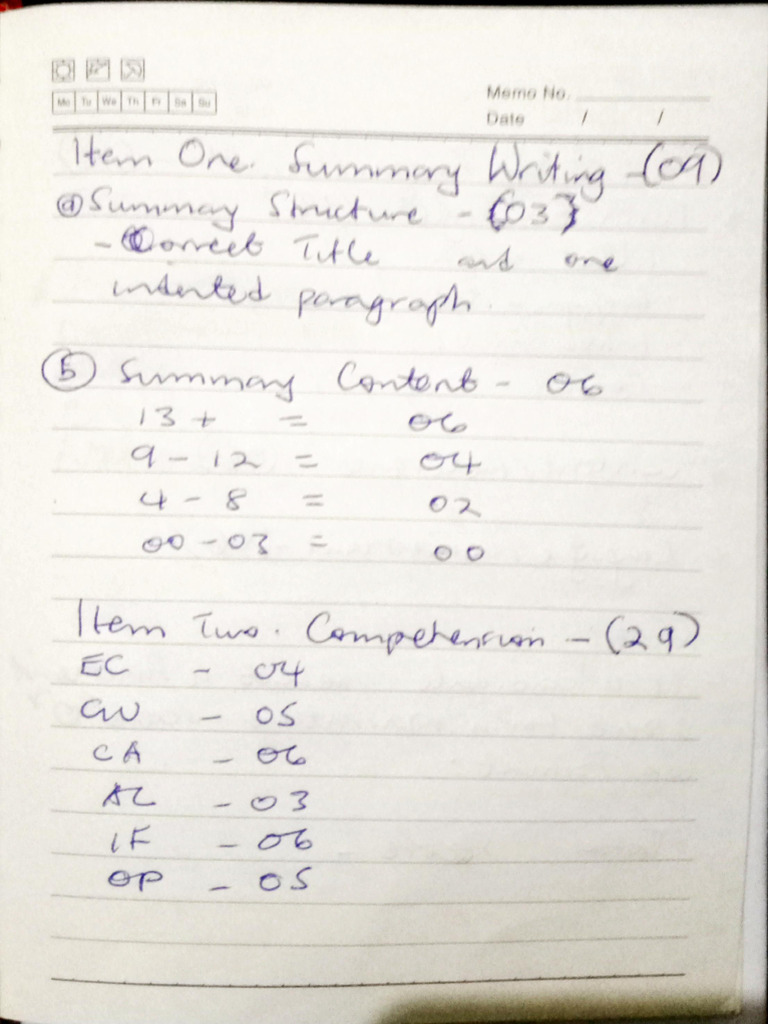 Mo Tu We Th Fr Sa Su
Memo No.
Date / /
Item One. Summary Writing - (09)
a Summary Structure - {03}
- Correct Title and one
indented paragraph.
b Summary Content - 06
13 + = 06
9 - 12 = 04
4 - 8 = 02
00 - 03 = 00
Item Two. Comprehension - (29)
EC - 04
CW - 05
CA - 06
AL - 03
IF - 06
OP - 05